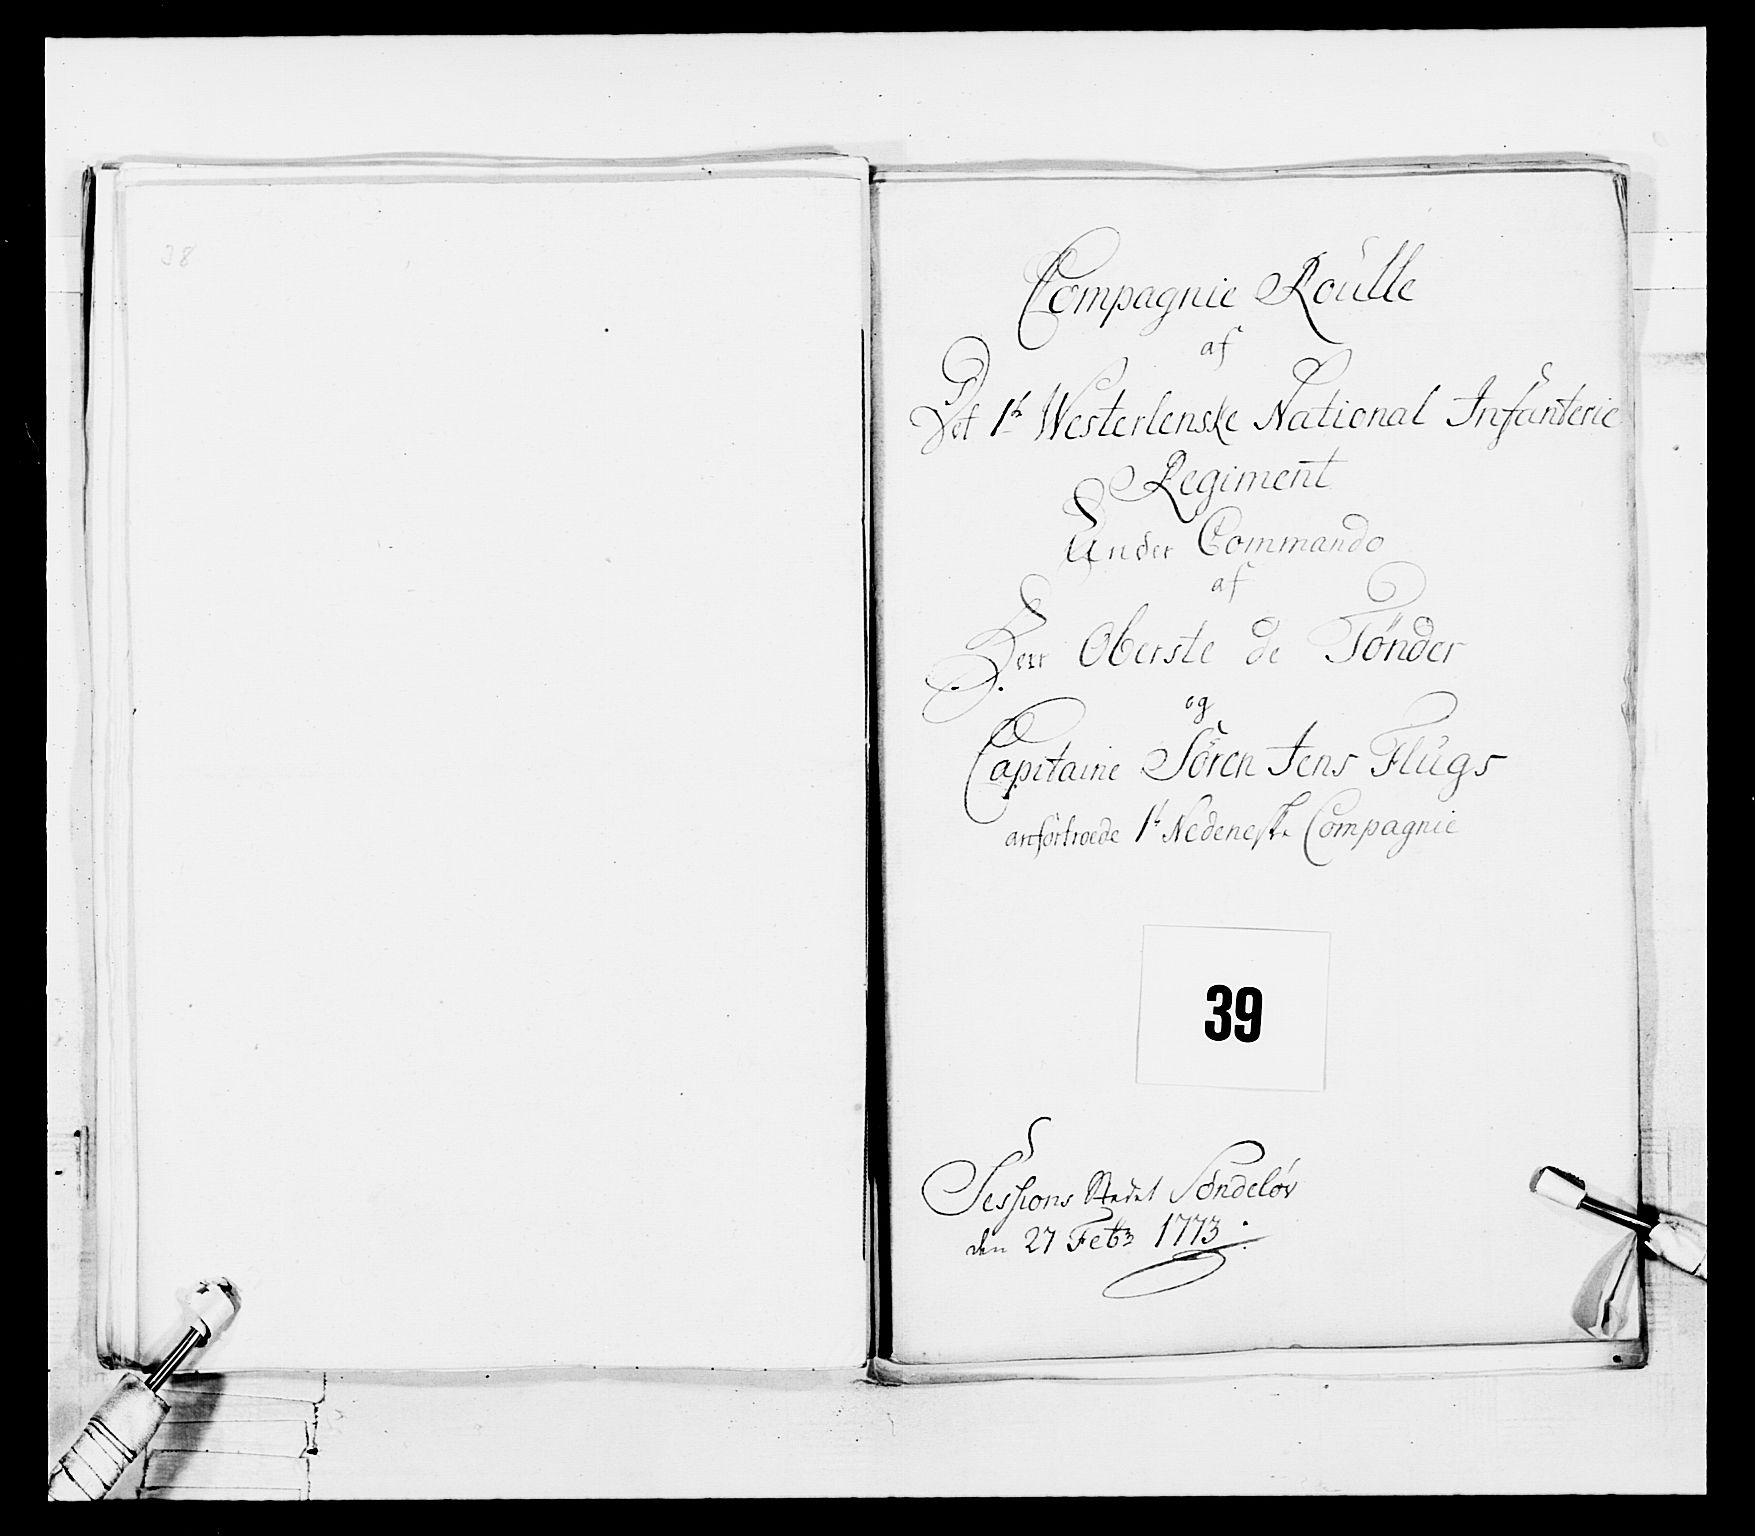 38
Compagnie Roulle
af
Det 1t Westerlenske National Infanterie
Regiment
Under Commando
af
Herr Oberste de Tønder
og
Capitaine Søren Jens Flugs
anfortroede 1t Nedeneske Compagnie
39
Sessions Stedet Søndeløv
den 27 Febr 1773